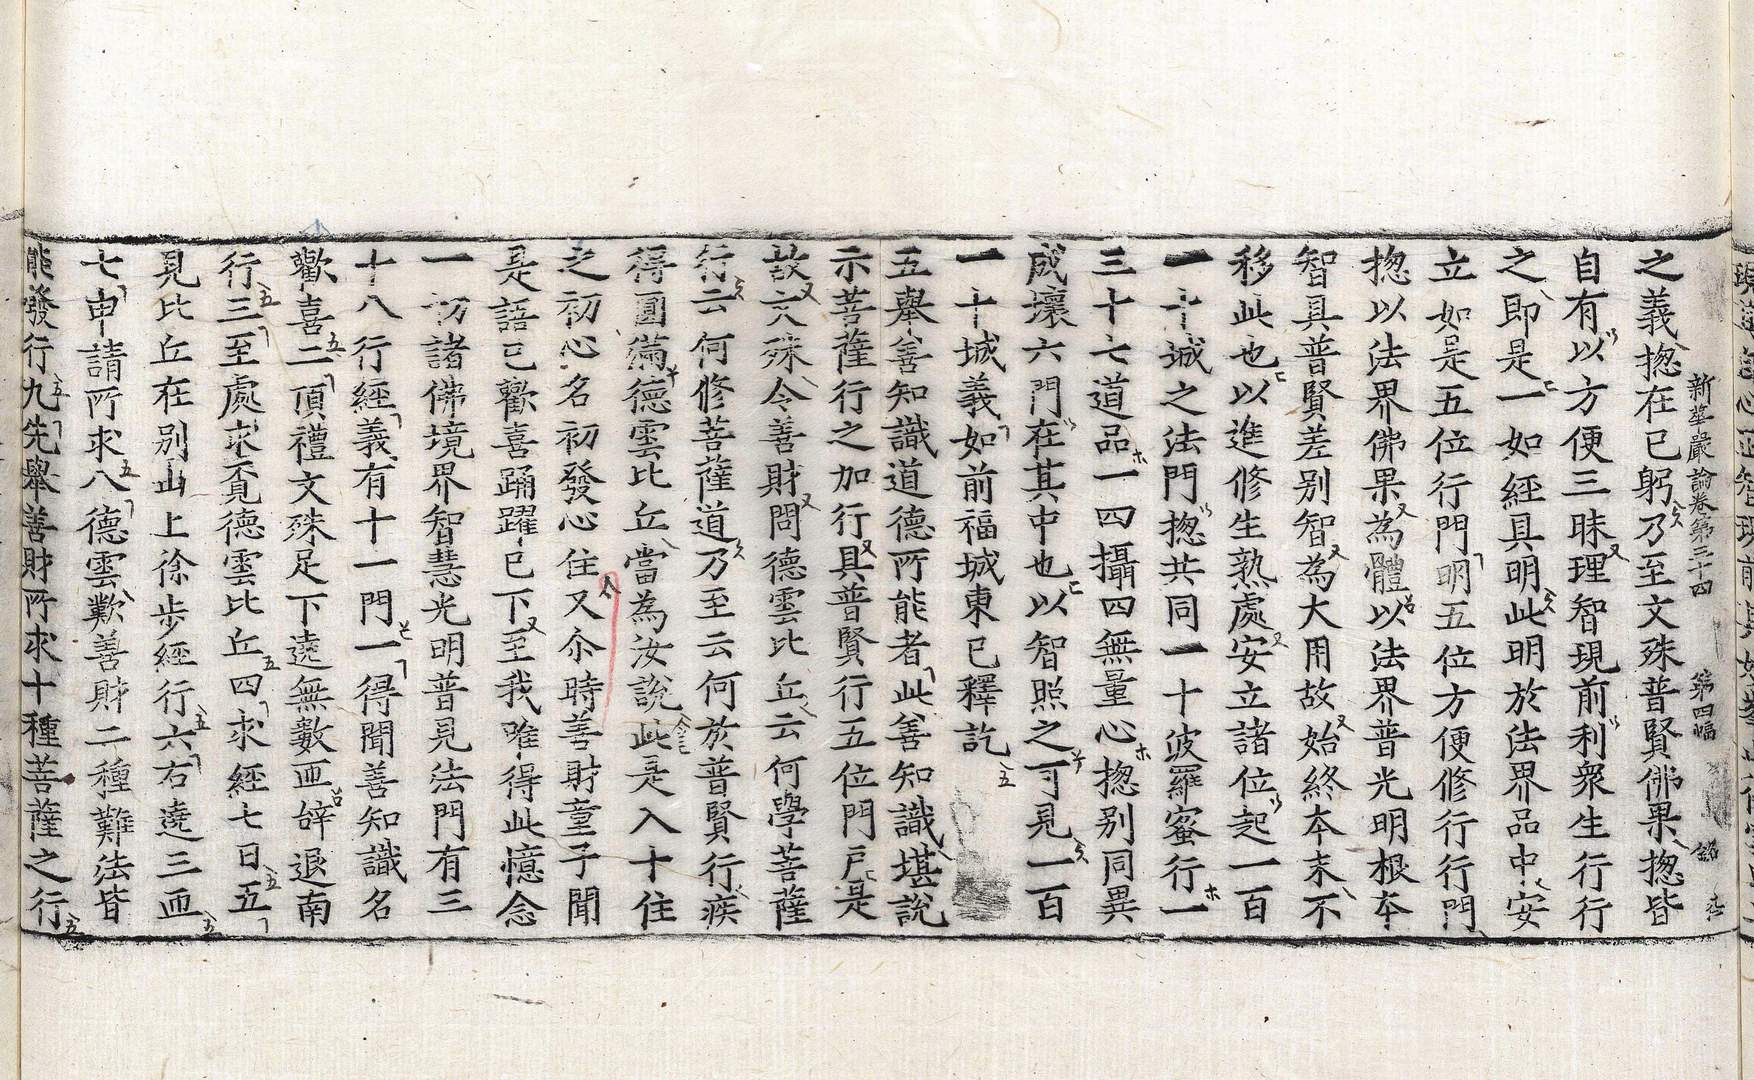 新華嚴論卷第三十四 第四幅
之義揔在已躬乃至文殊普賢佛果揔皆
自有以方便三昧理智現前利衆生行行
之即是一如經具明此明於法界品中安
立如是五位行門明五位方便修行行門
揔以法界佛果為體以法界普光明根夲
智具普賢差别智為大用故始終夲末不
移此也以進修生熟處安立諸位起一百
一十城之法門揔共同一十波羅蜜行一
三十七道品一四攝四無量心揔别同異
成壞六門在其中也以智照之可見一百
一十城義如前福城東已釋訖
五舉善知識道德所能者此善知識堪說
示菩薩行之加行具普賢行五位門戶是
故文殊令善財問德雲比丘云何學菩薩
行云何修菩薩道乃至云何於普賢行疾
得圓滿德雲比丘當為汝說此是入十住
之初心名初發心住又尒時善財童子聞
是語已歡喜踊躍已下至我唯得此憶念
一切諸佛境界智慧光明普見法門有三
十八行經義有十一門一得聞善知識名
歡喜二頂禮文殊足下遶無數匝辞退南
行三至處求覓德雲比丘四求經七日五
見比丘在别山上徐步經行六右遶三匝
七申請所求八德雲歎善財二種難法皆
能發行九先舉善財所求十種菩薩之行